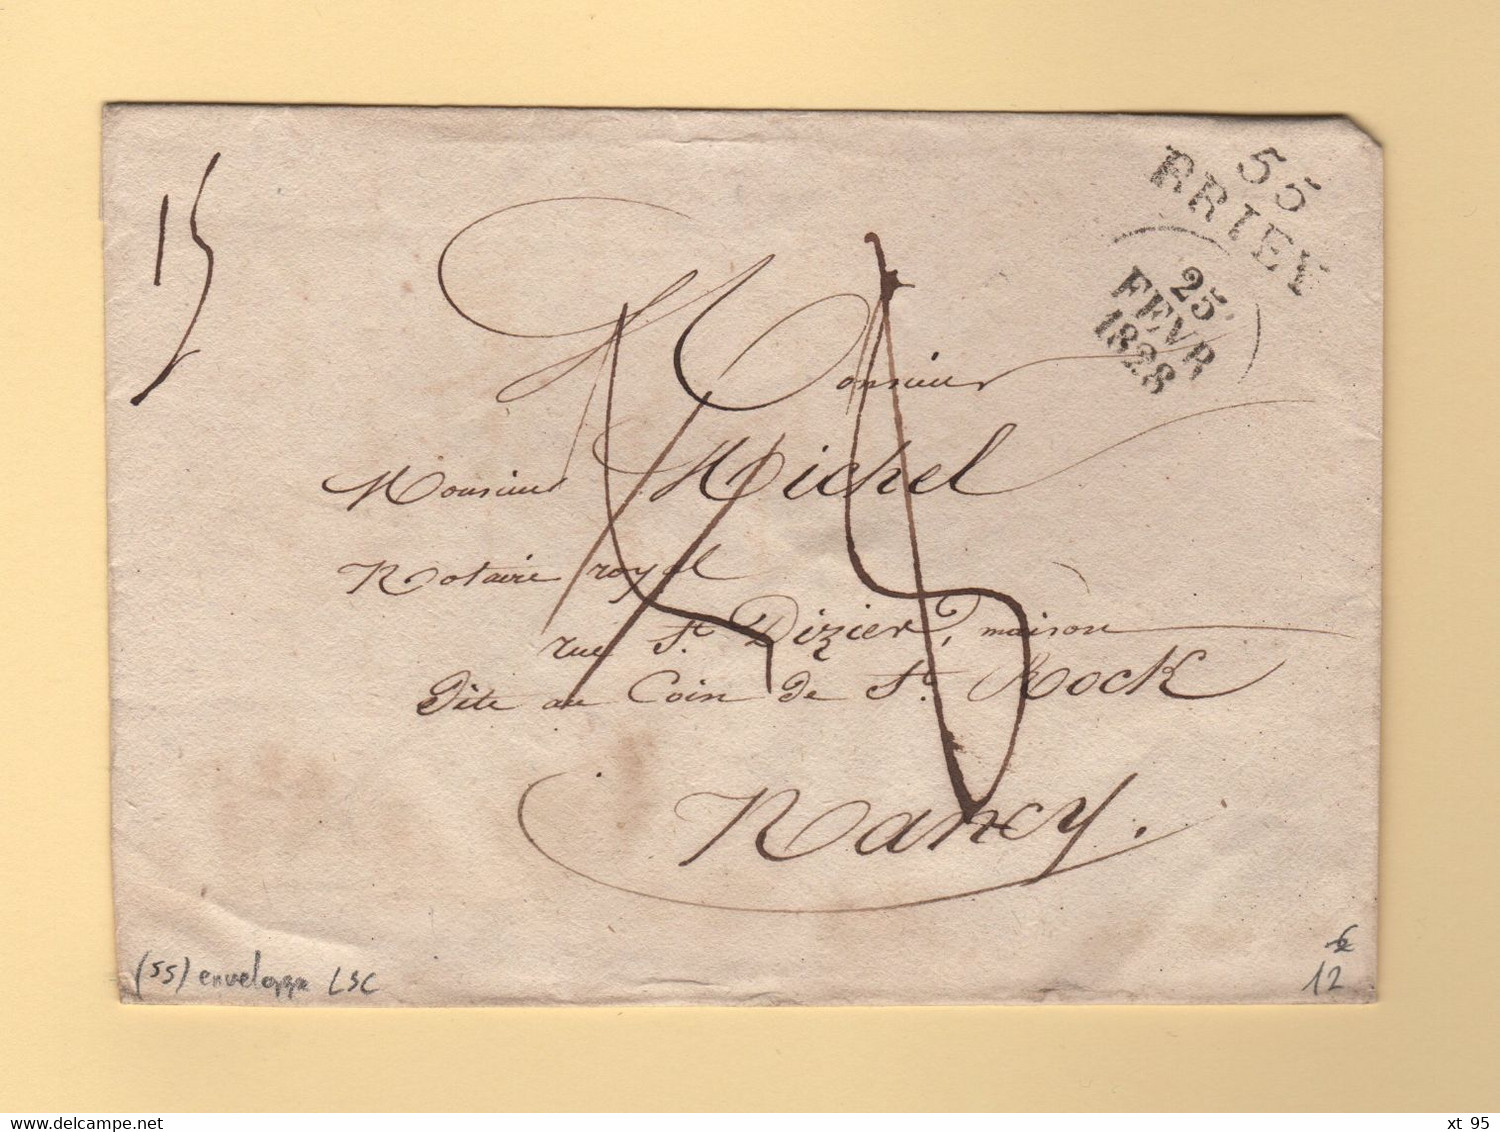 15
55
BRIEY
25
FEVR
1828
Monsieur
Monsieur Michel
Notaire royal
rue St. Dizier, maison
dite au Coin de St. Rock
Nancy.
(55) enveloppe LSC
12
delcampe.net
xt 95